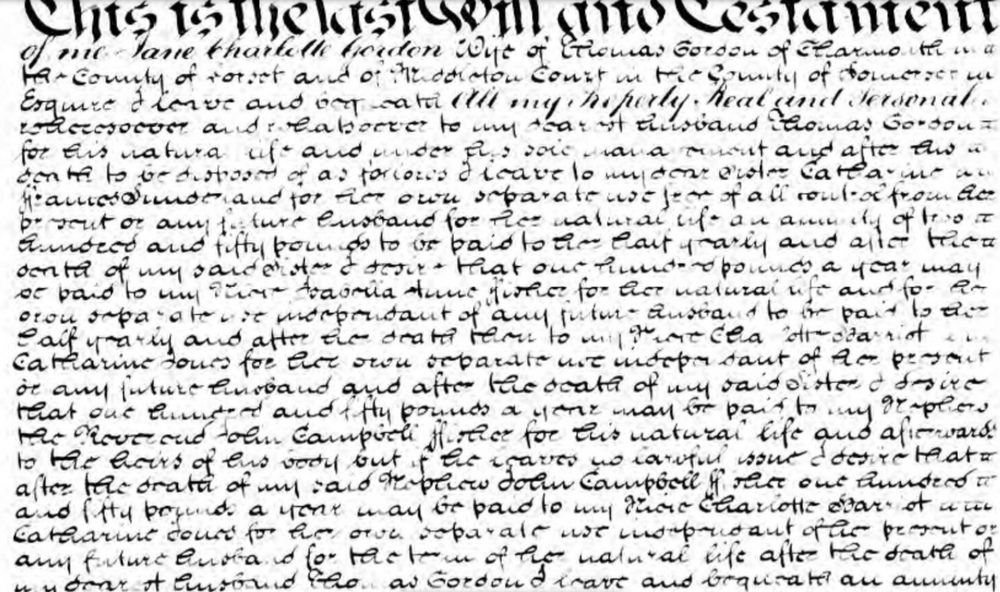 This is the last Will and Testament
of me Jane Charlotte Gordon Wife of Thomas Gordon of Charmouth in
the County of Dorset and of Middleton Court in the County of Somerset
Esquire I leave and bequeath All my Property Real and Personal
wheresoever and whatsoever to my dearest husband Thomas Gordon
for his natural life and under his sole management and after his
death to be disposed of as follows I leave to my dear Sister Catharine
Frances Sunderland for her own separate use free of all control from her
present or any future husband for her natural life an annuity of two
hundred and fifty pounds to be paid to her half yearly and after the
death of my said Sister I desire that one hundred pounds a year may
be paid to my Niece Isabella Anne Fisher for her natural life and for her
own separate use independant of any future husband to be paid to her
half yearly and after her death then to my Niece Charlotte Harriot
Catharine Jones for her own separate use independant of her present
or any future husband and after the death of my said Sister I desire
that one hundred and fifty pounds a year may be paid to my Nephew
the Reverend John Campbell Fisher for his natural life and afterwards
to the heirs of his body but if he leaves no lawful issue I desire that
after the death of my said Nephew John Campbell Fisher one hundred
and fifty pounds a year may be paid to my Niece Charlotte Harriot
Catharine Jones for her own separate use independant of her present or
any future husband for the term of her natural life after the death of
my dearest husband Thomas Gordon I leave and bequeath an annuity